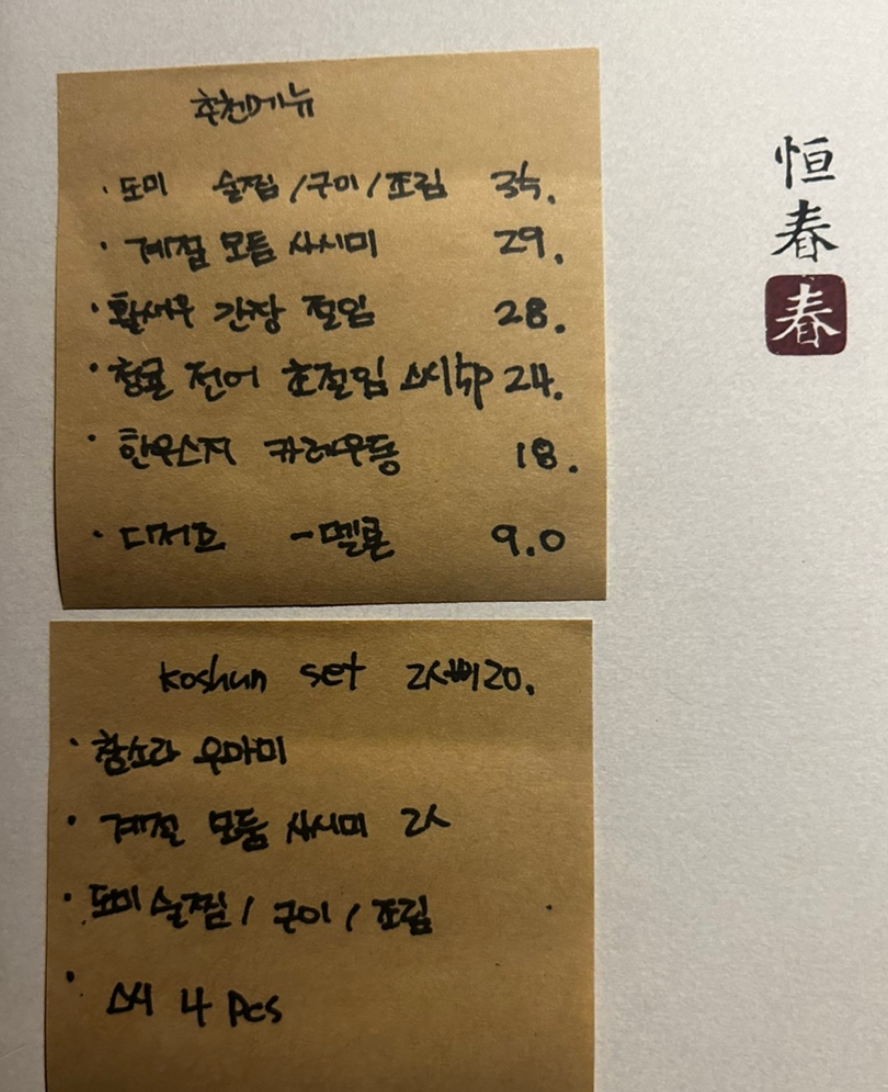 추천메뉴
· 도미 술찜/구이/조림 34.
· 계절 모듬 사시미 29.
· 활새우 간장 절임 28.
· 청귤 전어 초절임 스시 5p 24.
· 한우스지 카레우동 18.
· 디저트 -멜론 9.0
koshun set 2人 120.
· 참소라 우마미
· 계절 모듬 사시미 2人
· 도미 술찜 / 구이 / 조림
· 스시 4 pcs
恒
春
春